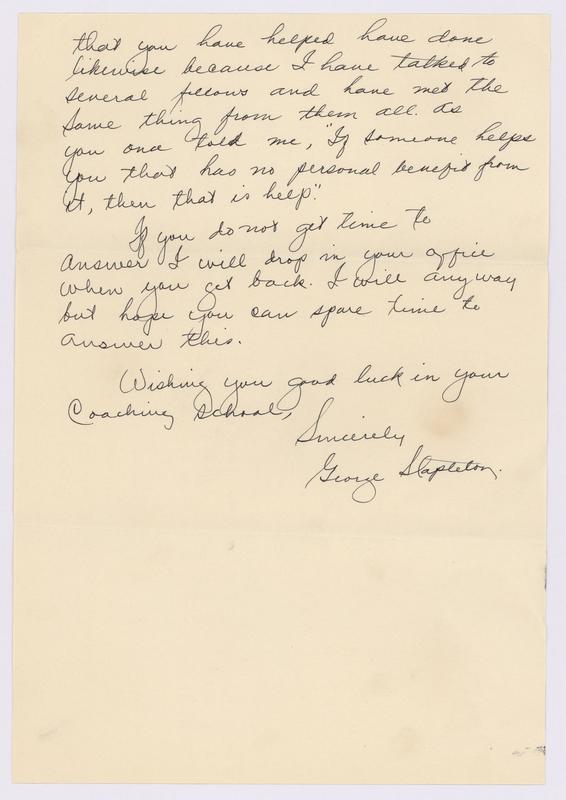 that you have helped have done
likewise because I have talked to
several fellows and have met the
same thing from them all. As
you once told me, "If someone helps
you that has no personal benefit from
it, then that is help".
If you do not get time to
answer I will drop in your office
when you get back. I will anyway
but hope you can spare time to
answer this.
Wishing you good luck in your
Coaching School,
Sincerely
George Stapleton.